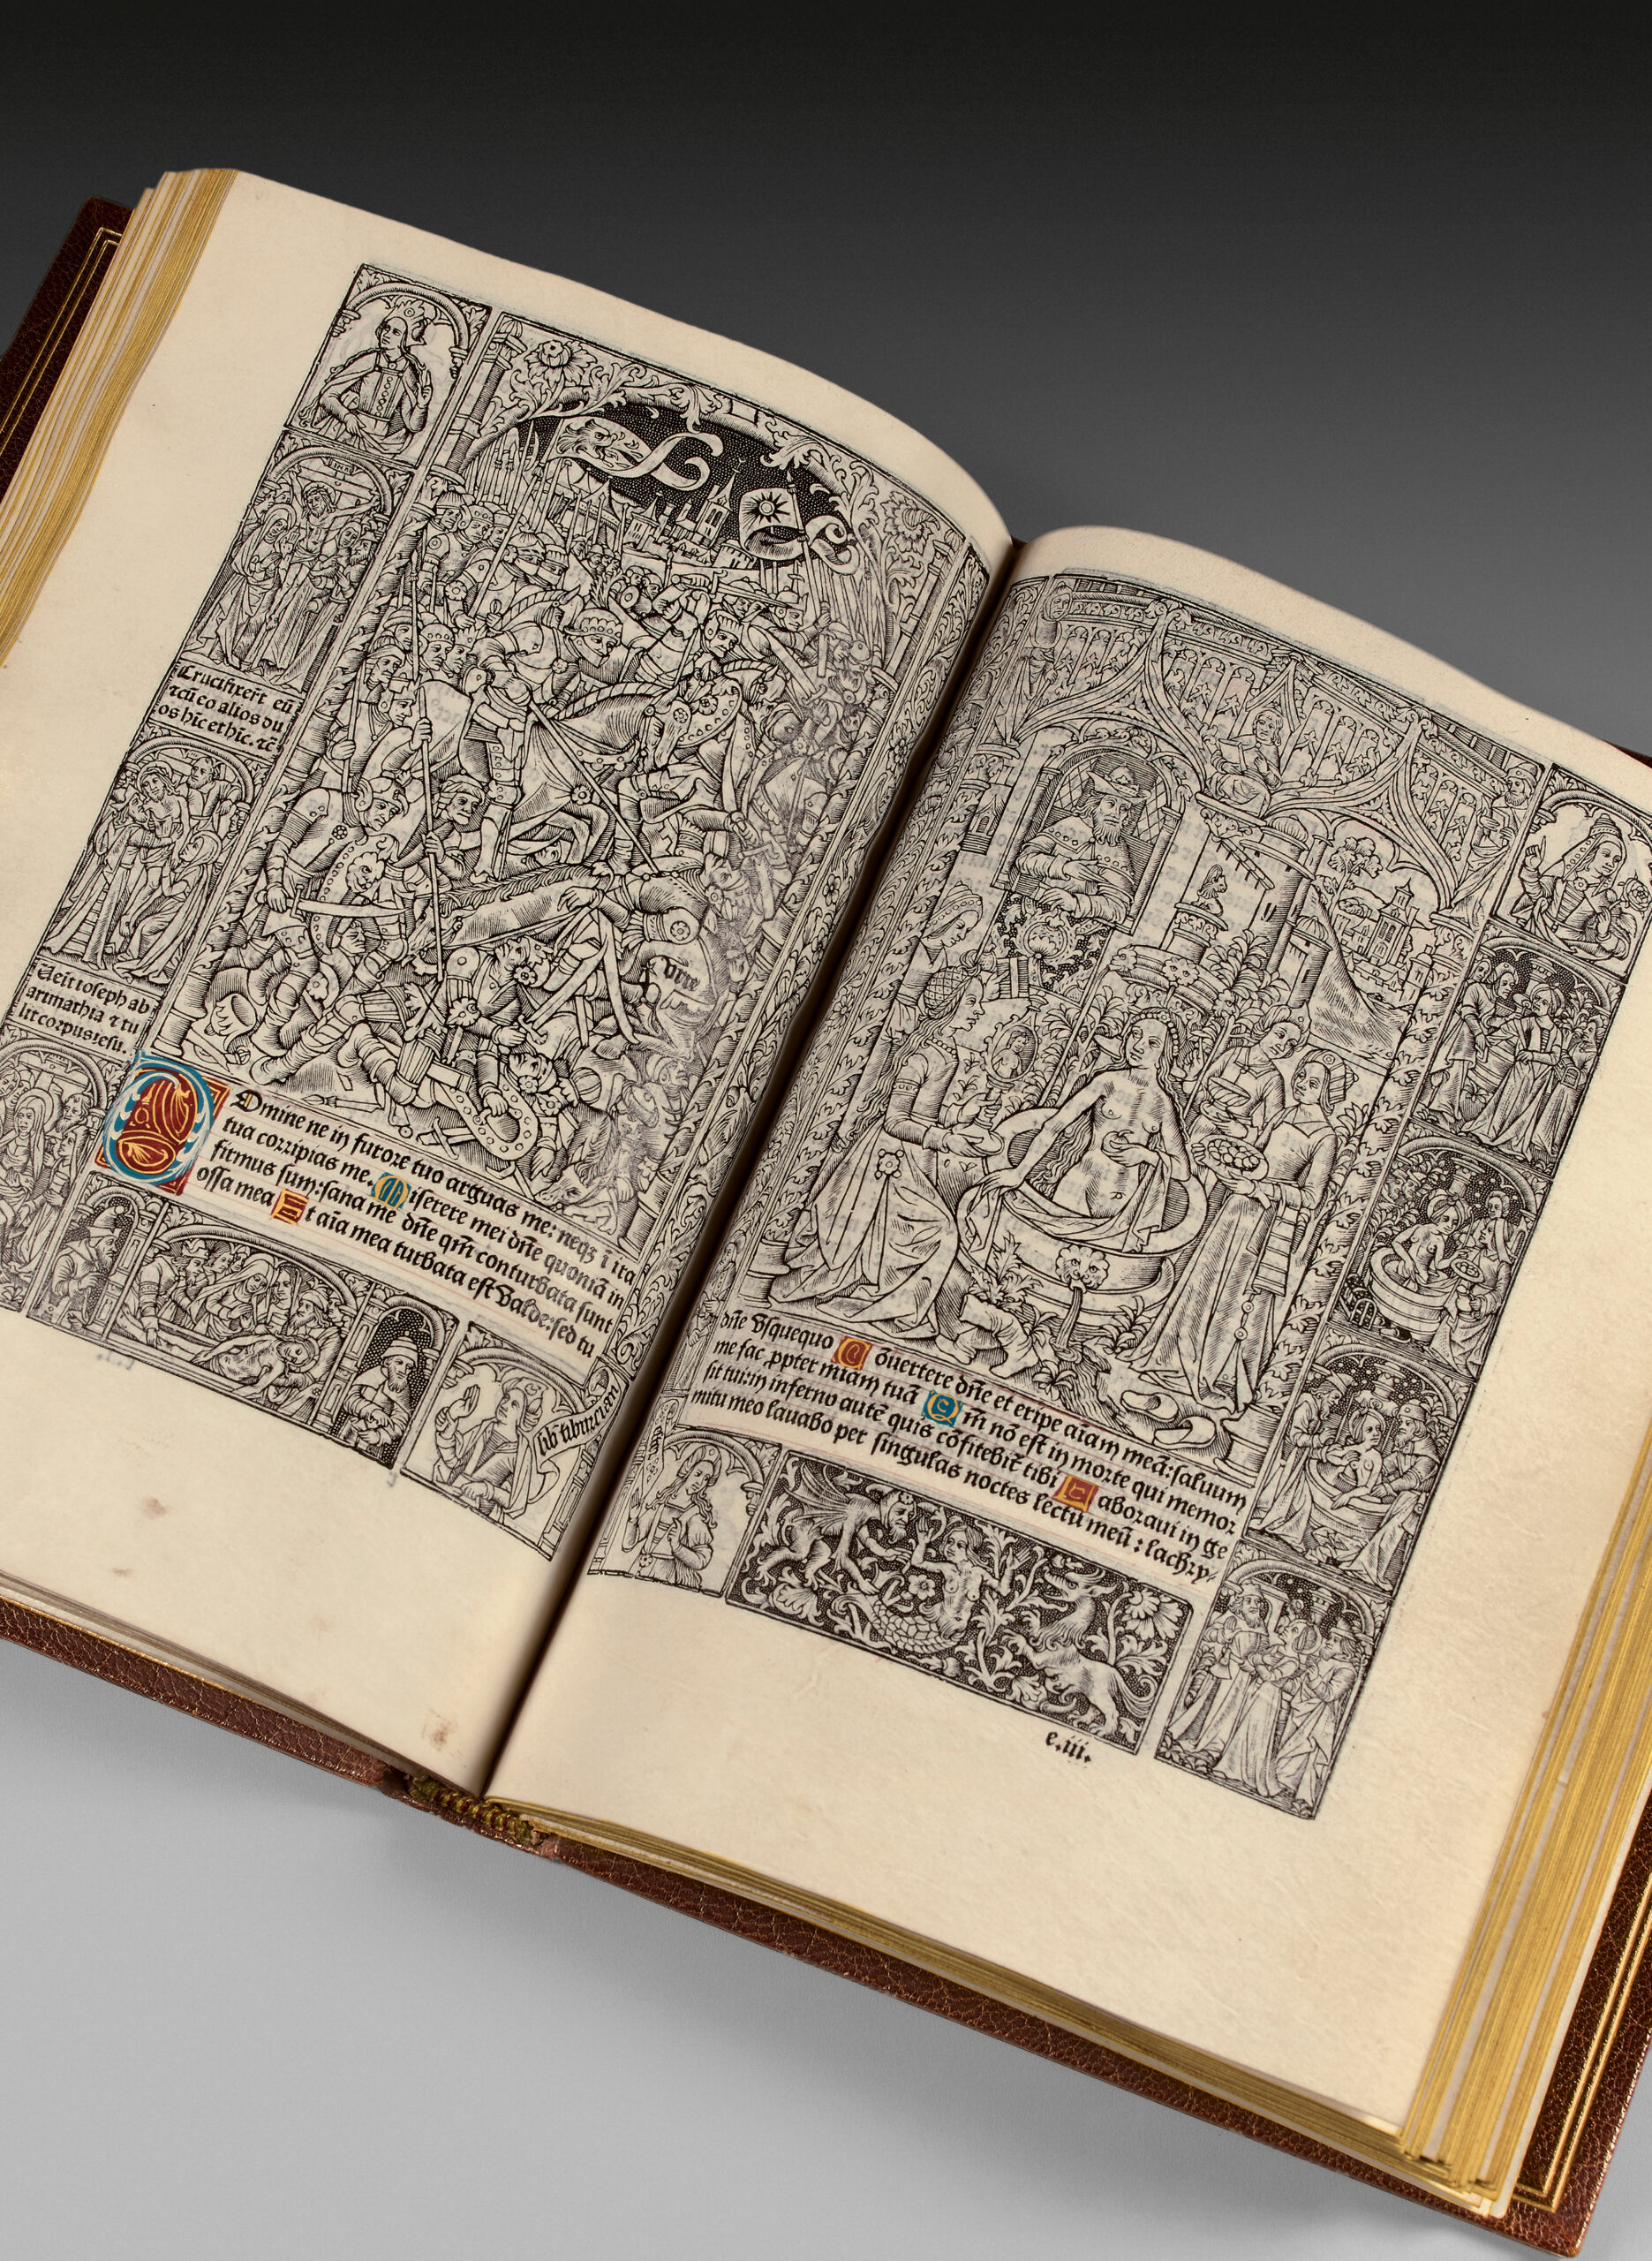 Crucifixerūt eū
⁊cū eo alios du
os hīc et hīc. ⁊c̄
Ueit ioseph ab
arimathia ⁊ tu
lit corpus iesu.
Urie
Domine ne in furore tuo arguas me: neqȝ ī ira
tua corripias me. Miserere mei dn̄e quoniā in
firmus sum: sana me dn̄e qm̄ conturbata sunt
ossa mea Et aīa mea turbata est valde: sed tu
sib tiburcian
dn̄e vsquequo Cōuertere dn̄e et eripe aīam meā: saluum
me fac ꝓpter miām tuā Qm̄ nō est in morte qui memor
sit tui: in inferno autē quis cōfitebit̄ tibi Laboraui in ge
mitu meo lauabo per singulas noctes lectū meū: lachry-
e.iii.